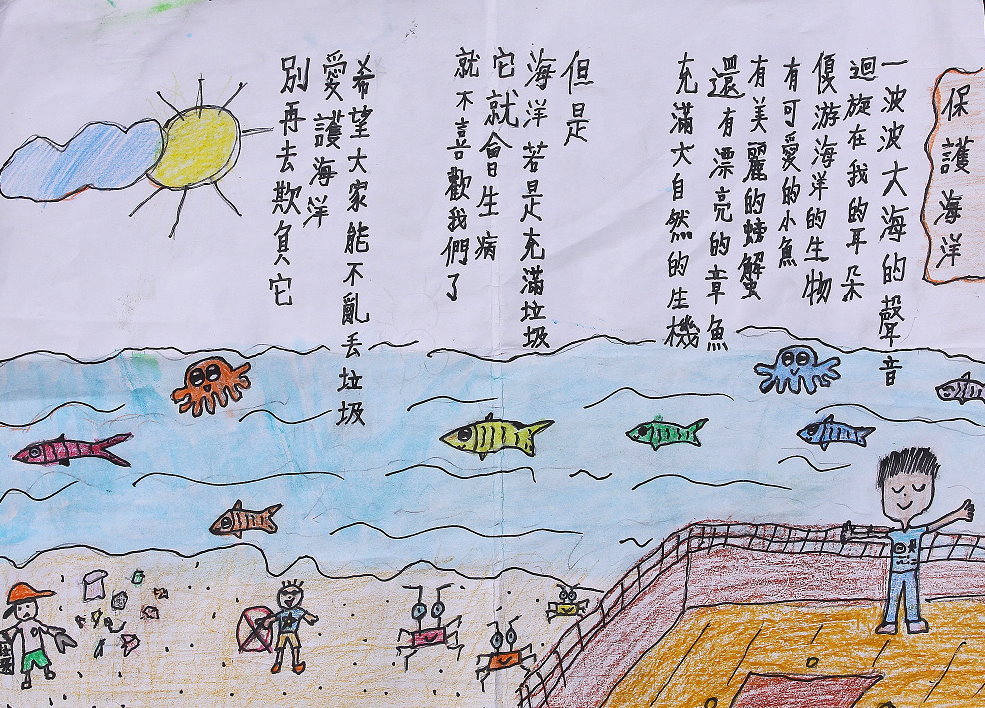 保護海洋
一波波大海的聲音
迴旋在我的耳朵
優游海洋的生物
有可愛的小魚
有美麗的螃蟹
還有漂亮的章魚
充滿大自然的生機
但是
海洋若是充滿垃圾
它就會生病
就不喜歡我們了
希望大家能不亂丟垃圾
愛護海洋
別再去欺負它